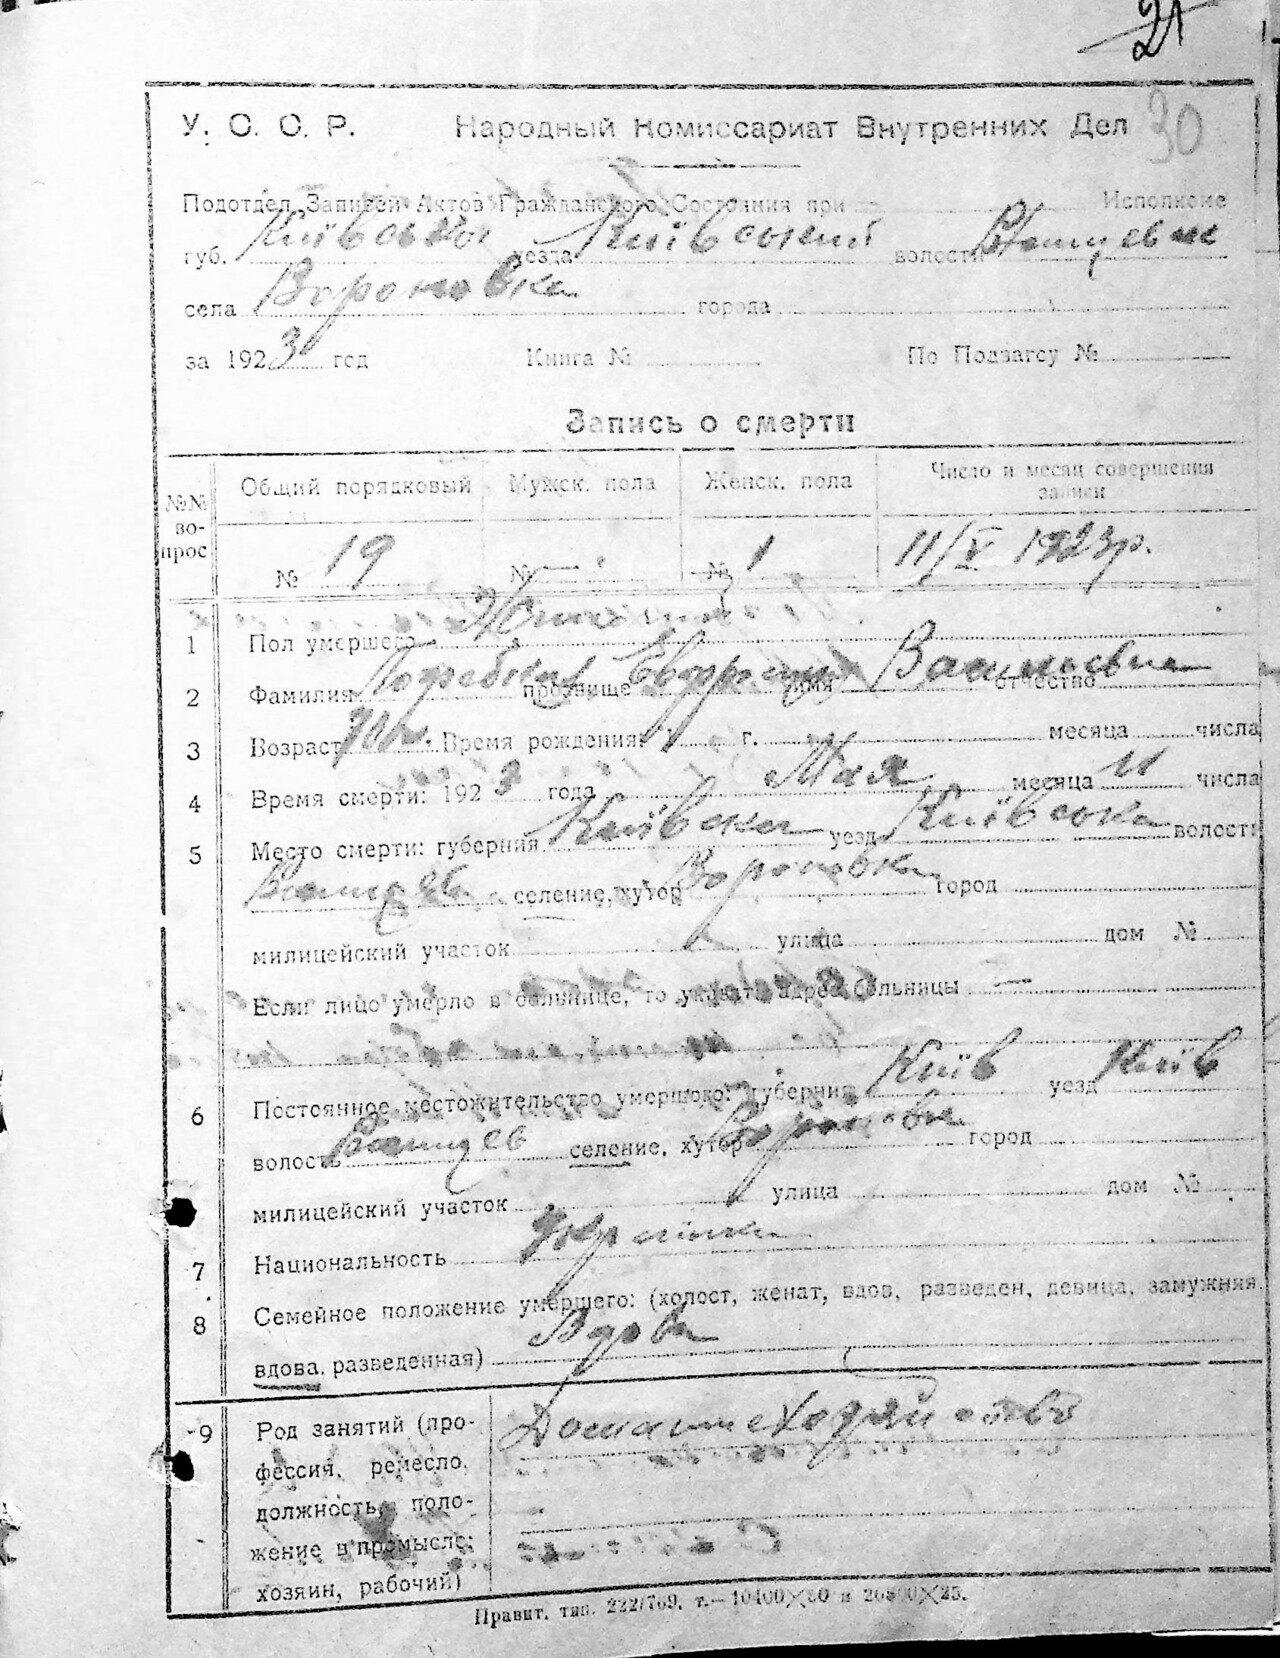 21
30
У. С. С. Р. Народный Комиссариат Внутренних Дел
Подотдел Записей Актов Гражданского Состояния при Исполкоме
губ. уезда Київський волости
села Вороновка города
за 1923 год Книга № По Подзагсу №
Запись о смерти
№№ вопрос Общий порядковый Мужск. пола Женск. пола Число и месяц совершения записи
№ 19 № — № 1 11/V 1923р.
1 Пол умершего
2 Фамилия прозвище имя отчество
3 Возраст Время рождения г. месяца числа
4 Время смерти: 1923 года Мая месяца 11 числа
5 Место смерти: губерния Київска уезд Київська волости
селение, хутор Вороновка город
милицейский участок улица дом №
Если лицо умерло в больнице, то указать адрес больницы —
6 Постоянное местожительство умершого: губерния Київ уезд Київ
волость селение, хутор Вороновка город
милицейский участок улица дом №
7 Национальность Українка
8 Семейное положение умершего: (холост, женат, вдов, разведен, девица, замужняя,
вдова, разведенная) Вдова
9 Род занятий (про-
фессия, ремесло,
должность, поло-
жение в промысле:
хозяин, рабочий)
Домашне хозяйство
Правит. тип.